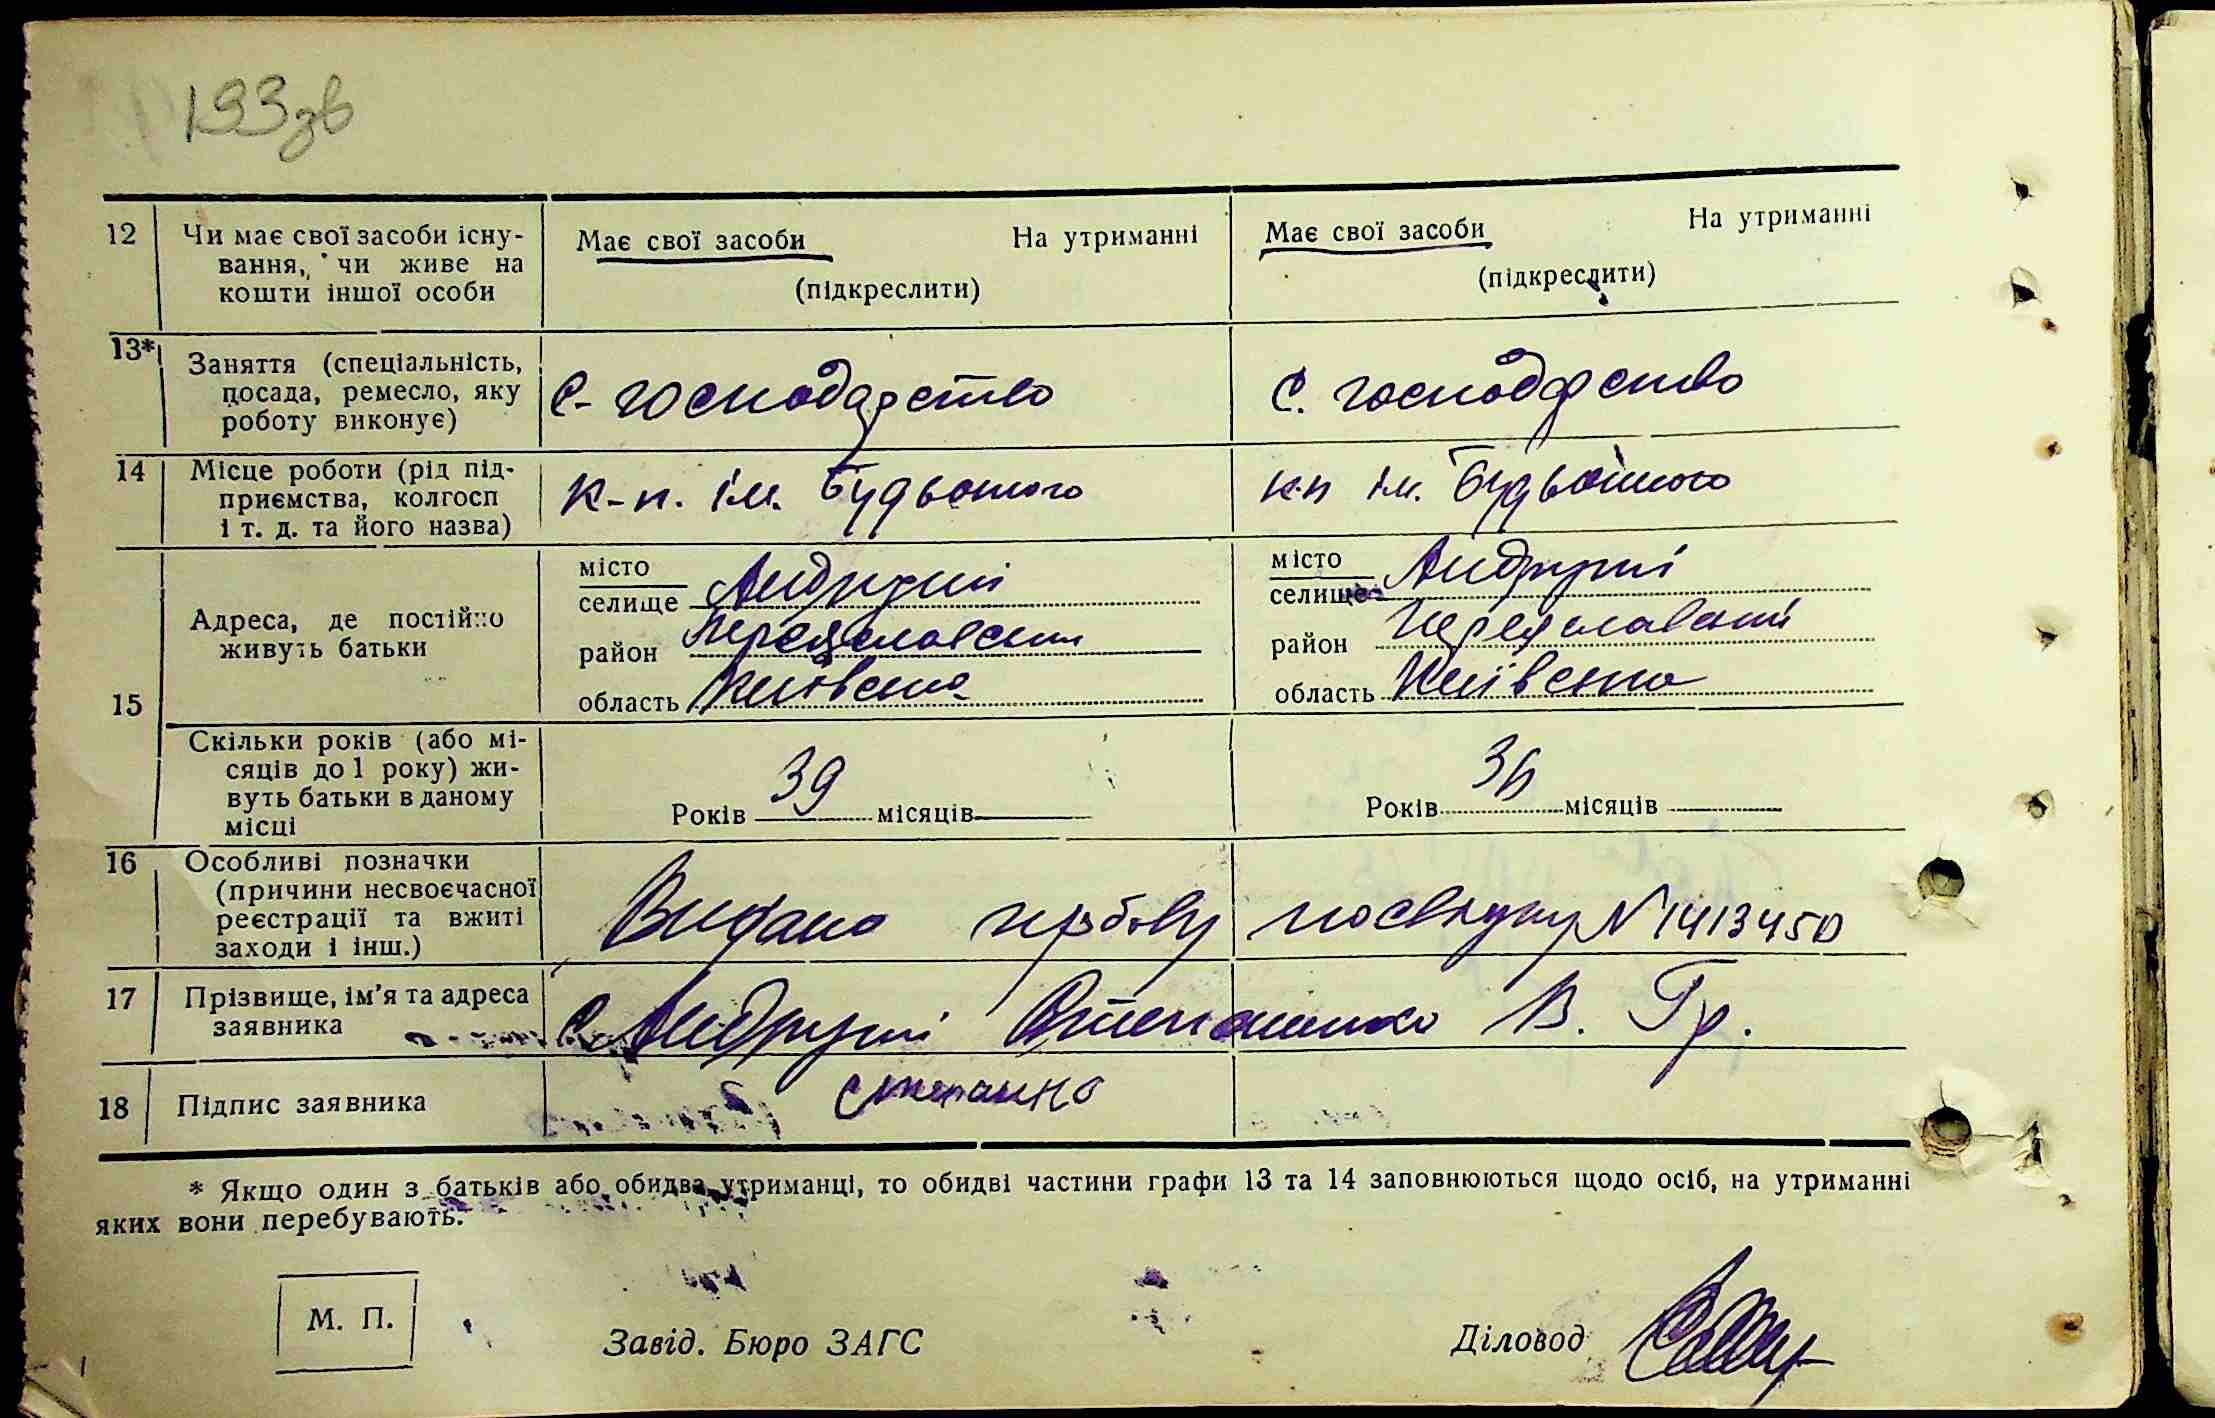 193зв
12 Чи має свої засоби існу- Має свої засоби На утриманні Має свої засоби На утриманні
вання, чи живе на
кошти іншої особи (підкреслити) (підкреслити)
13* Заняття (спеціальність,
посада, ремесло, яку С-господарство С. господарство
роботу виконує)
14 Місце роботи (рід під-
приємства, колгосп к-п. ім. Будьоного кп ім. Будьоного
і т. д. та його назва)
місто місто
селище Андруші селище Андруші
Адреса, де постійно
живуть батьки район Переяславский район Переяславский
15 область Київська область Київська
Скільки років (або мі-
сяців до 1 року) жи-
вуть батьки в даному
місці Років 39 місяців Років 36 місяців
16 Особливі позначки
(причини несвоєчасної
реєстрації та вжиті Видано посвідку N 1413450
заходи і інш.)
17 Прізвище, ім'я та адреса
заявника с. Андруші Степаненко В. Гр.
18 Підпис заявника
* Якщо один з батьків або обидва утриманці, то обидві частини графи 13 та 14 заповнюються щодо осіб, на утриманні
яких вони перебувають.
М. П.
Завід. Бюро ЗАГС Діловод